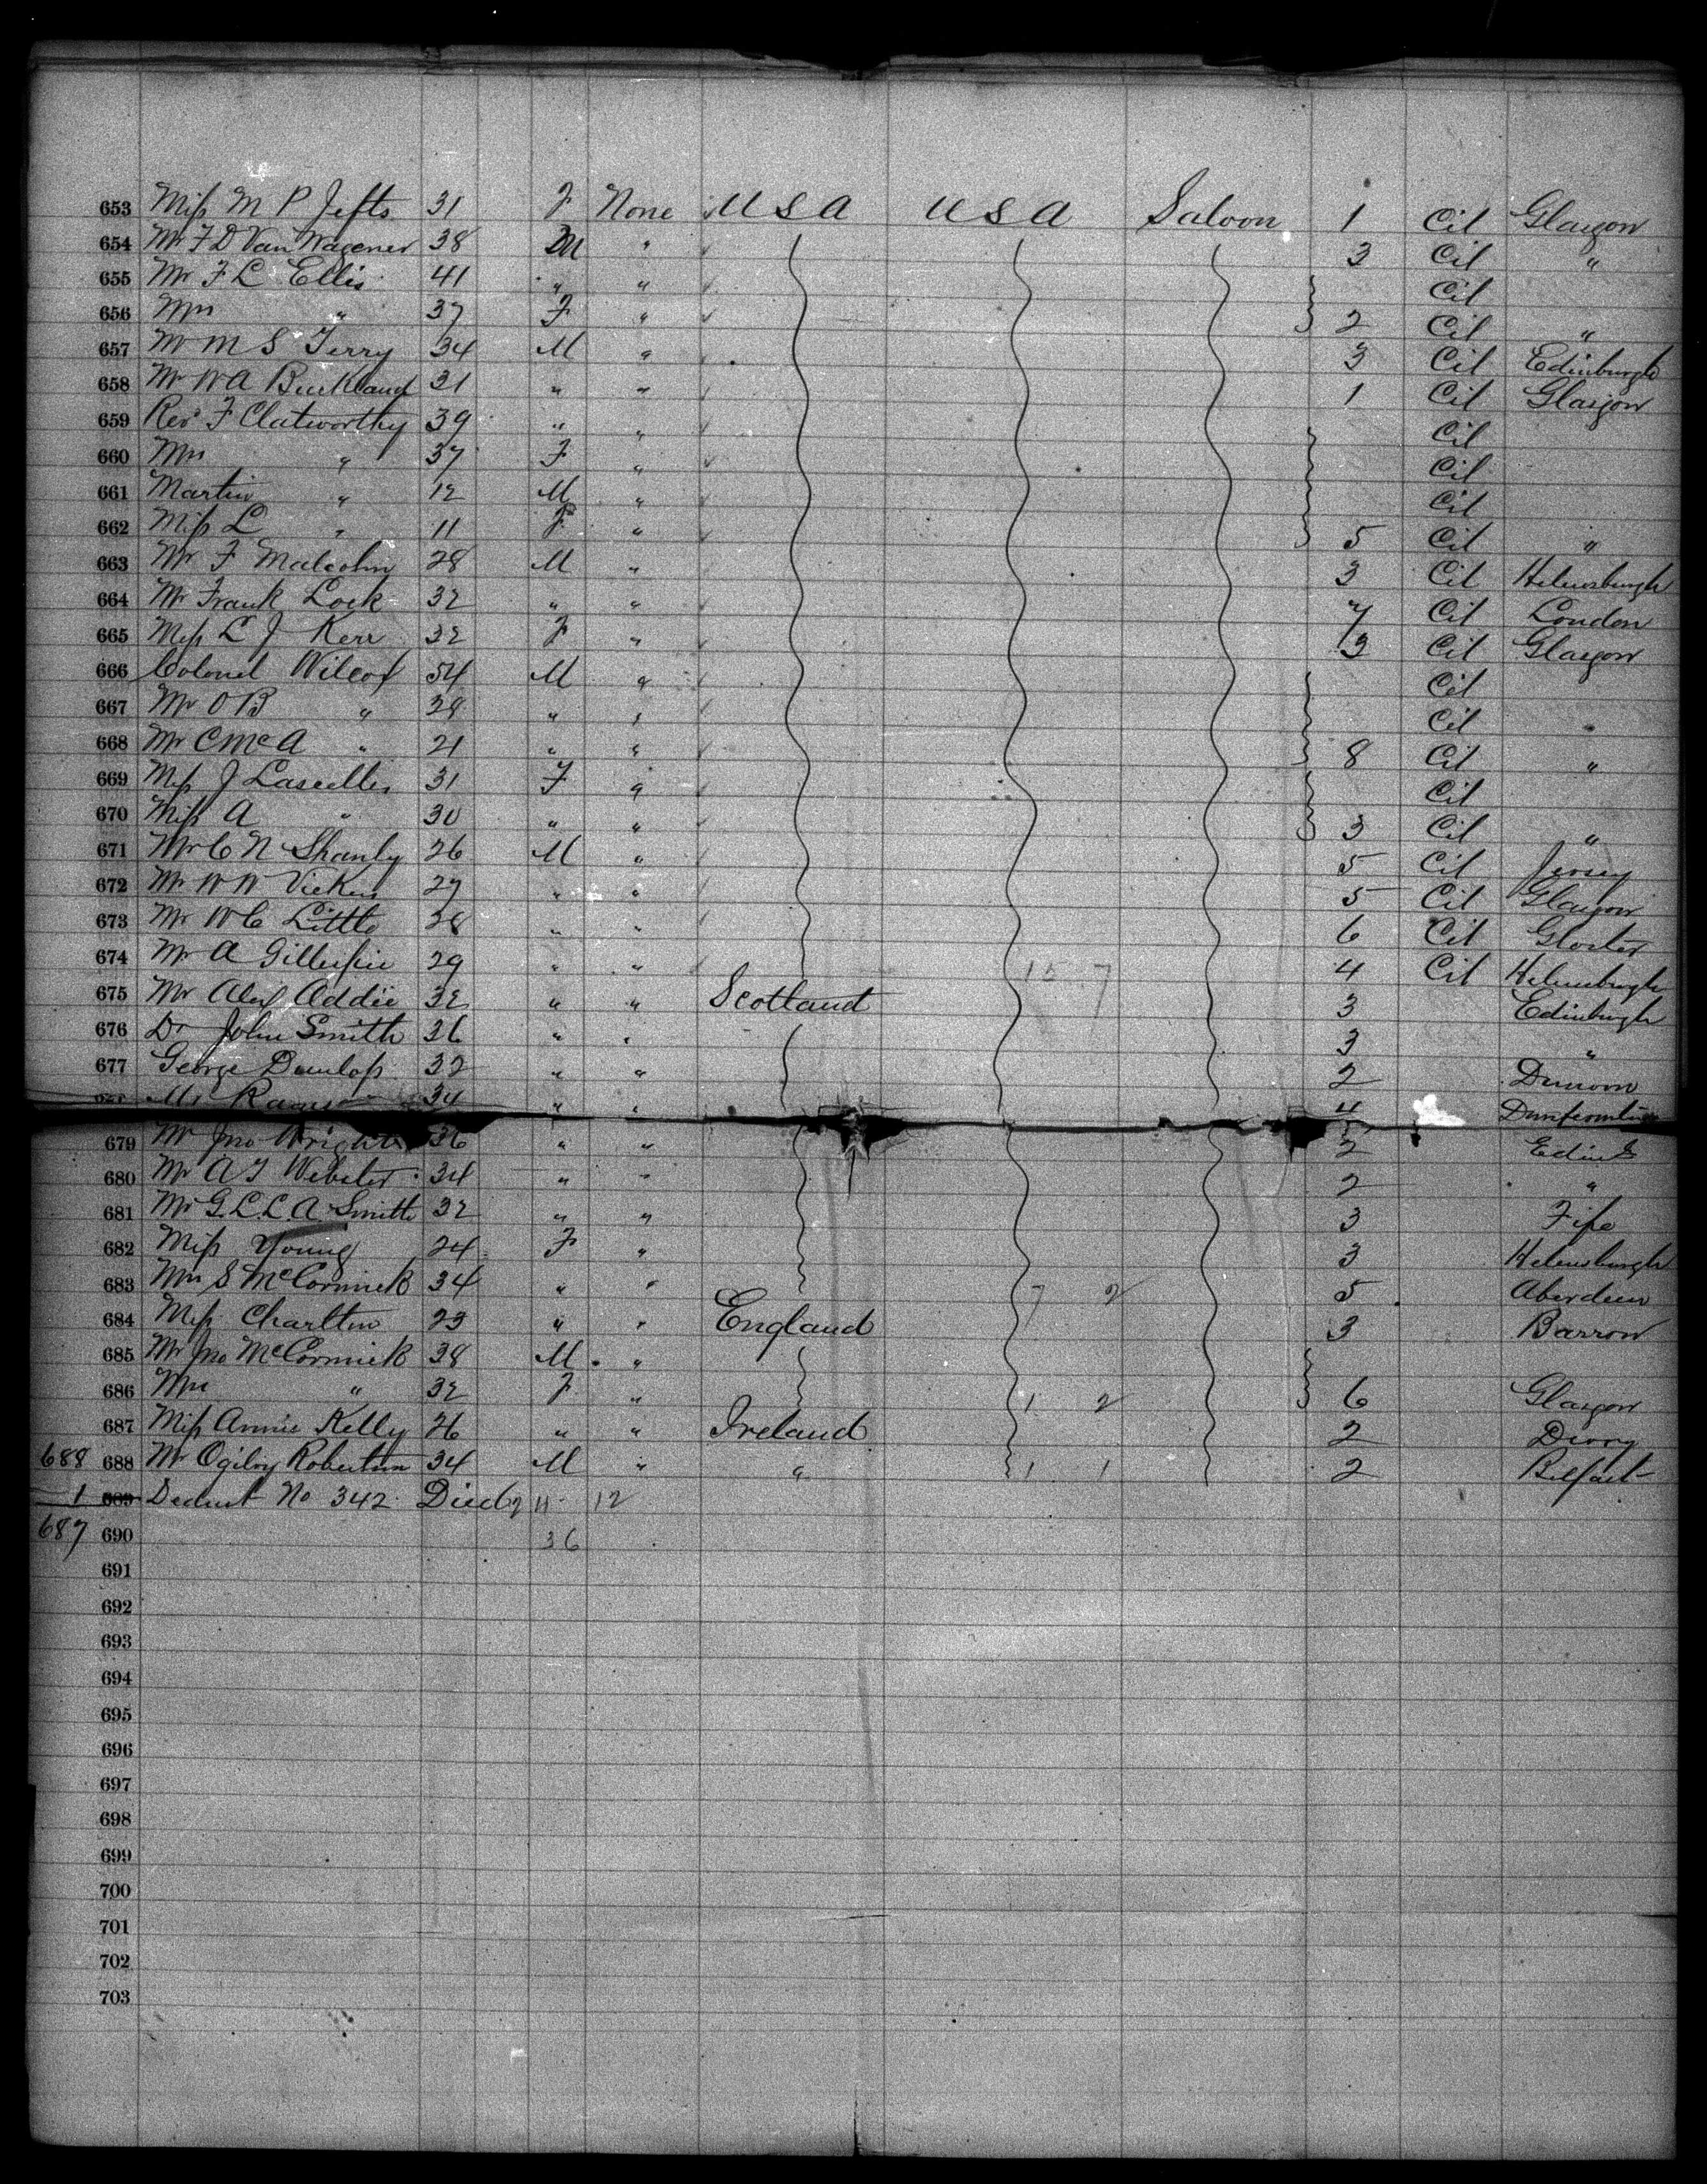 653 Miss M P Jefts 31 F None USA USA Saloon 1 Cit Glasgow
654 Mr F D Van Wagener 38 M " 3 Cit "
655 Mr F L Ellis 41 " " Cit
656 Mrs " 37 F " 2 Cit "
657 Mr M S Terry 34 M " 3 Cit Edinburgh
658 Mr W A Buckland 31 " " 1 Cit Glasgow
659 Rev F Clatworthy 39 " " Cit
660 Mrs " 37 F " Cit
661 Martin " 12 M " Cit
662 Miss L " 11 F " 5 Cit "
663 Mr F Malcolm 28 M " 3 Cit Helensburgh
664 Mr Frank Lock 32 " " 7 Cit London
665 Miss L J Kerr 32 F " 3 Cit Glasgow
666 Colonel Wilcox 54 M " Cit
667 Mr O B " 29 " " Cit
668 Mr C McA " 21 " " 8 Cit "
669 Miss J Lascelles 31 F " Cit
670 Miss A " 30 " " 3 Cit "
671 Mr C N Shanly 26 M " 5 Cit Jersey
672 Mr W W Vickers 27 " " 5 Cit Glasgow
673 Mr W C Little 28 " " 6 Cit Gloster
674 Mr A Gillespie 29 " " 15 7 4 Cit Helensburgh
675 Mr Alex Addie 32 " " Scotland 3 Edinburgh
676 Dr John Smith 36 " " 3 "
677 George Dunlop 32 " " 2 Dunoon
Mr 34 " " 4 Dunfermline
679 Mr Jno Wright 36 " " 2 Edinb
680 Mr A T Webster 34 " " 2 "
681 Mr G. L. L. A. Smith 32 " " 3 Fife
682 Miss Young 24 F " 3 Helensburgh
683 Mrs S McCormick 34 " " 7 2 5 Aberdeen
684 Miss Charlton 23 " " England 3 Barrow
685 Mr Jno McCormick 38 M "
686 Mrs " 32 F " 1 2 6 Glasgow
687 Miss Annie Kelly 26 " " Ireland 2 Derry
688 688 Mr Ogilby Robertson 34 M " " 1 1 2 Belfast
1 689 Deduct No 342 Died 11 12
687 690 36
691
692
693
694
695
696
697
698
699
700
701
702
703